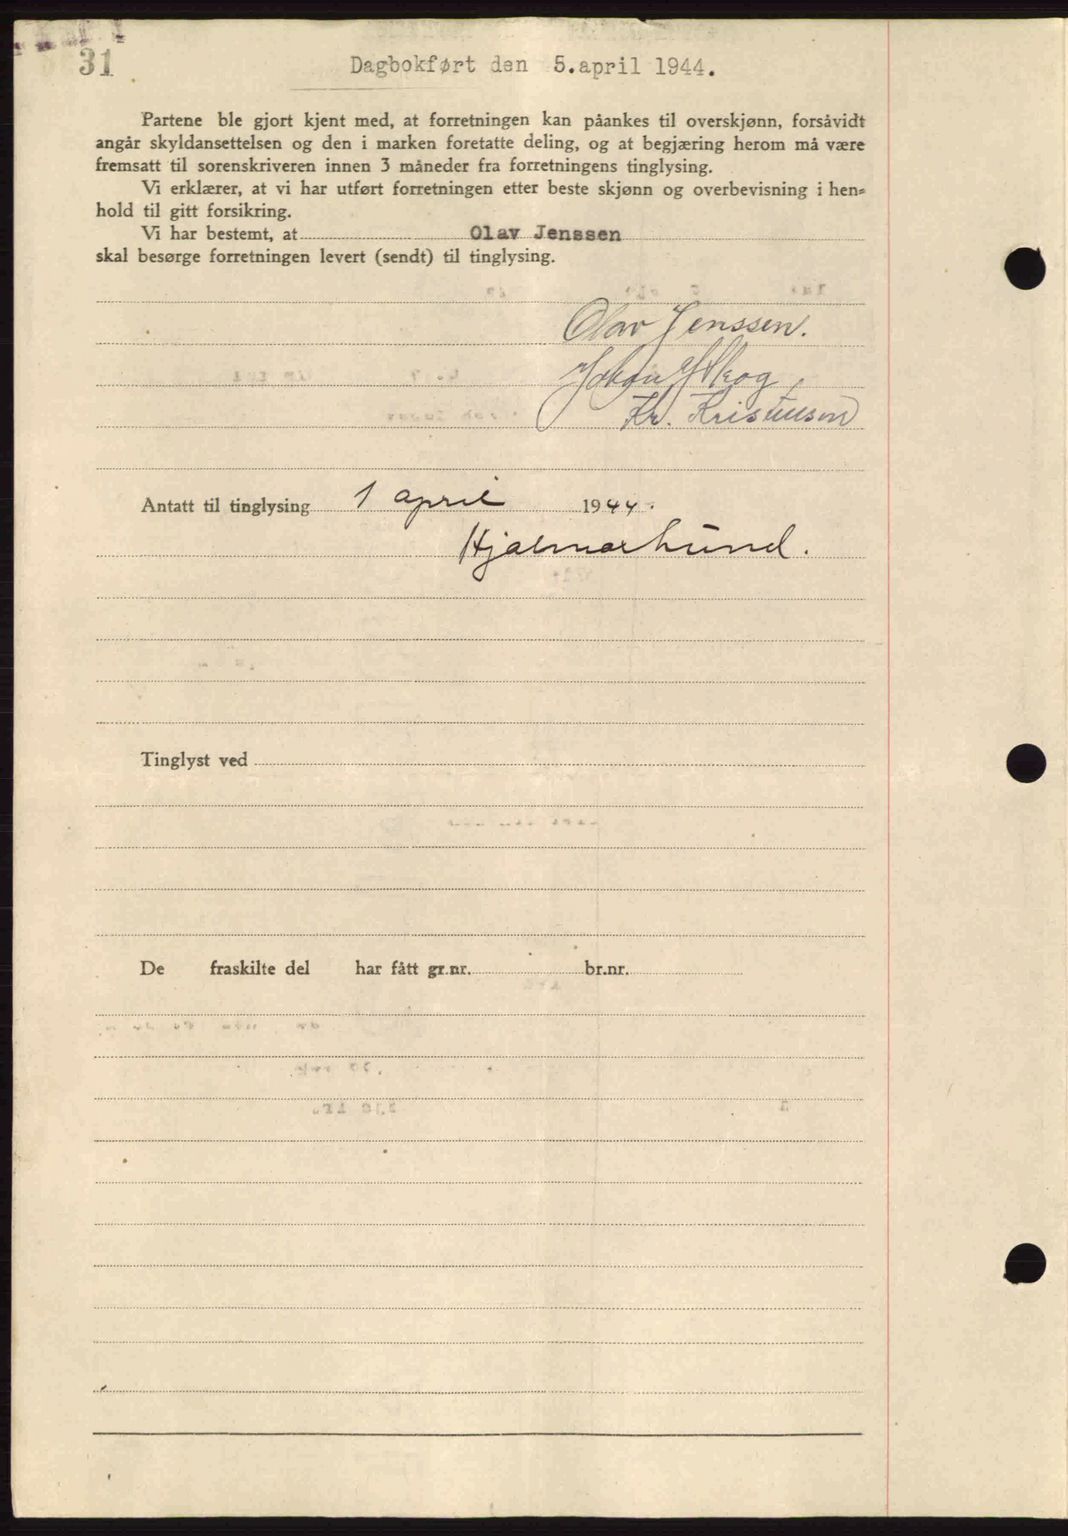 31
Dagbokført den 5.april 1944.
Partene ble gjort kjent med, at forretningen kan påankes til overskjønn, forsåvidt
angår skyldansettelsen og den i marken foretatte deling, og at begjæring herom må være
fremsatt til sorenskriveren innen 3 måneder fra forretningens tinglysing.
Vi erklærer, at vi har utført forretningen etter beste skjønn og overbevisning i hen=
hold til gitt forsikring.
Vi har bestemt, at Olav Jenssen
skal besørge forretningen levert (sendt) til tinglysing.
Olav Jenssen.
Johan Skog,
Kr. Kristensen
Antatt til tinglysing 1 april 1944.
Hjalmar Lund.
Tinglyst ved
De fraskilte del har fått gr.nr. br.nr.